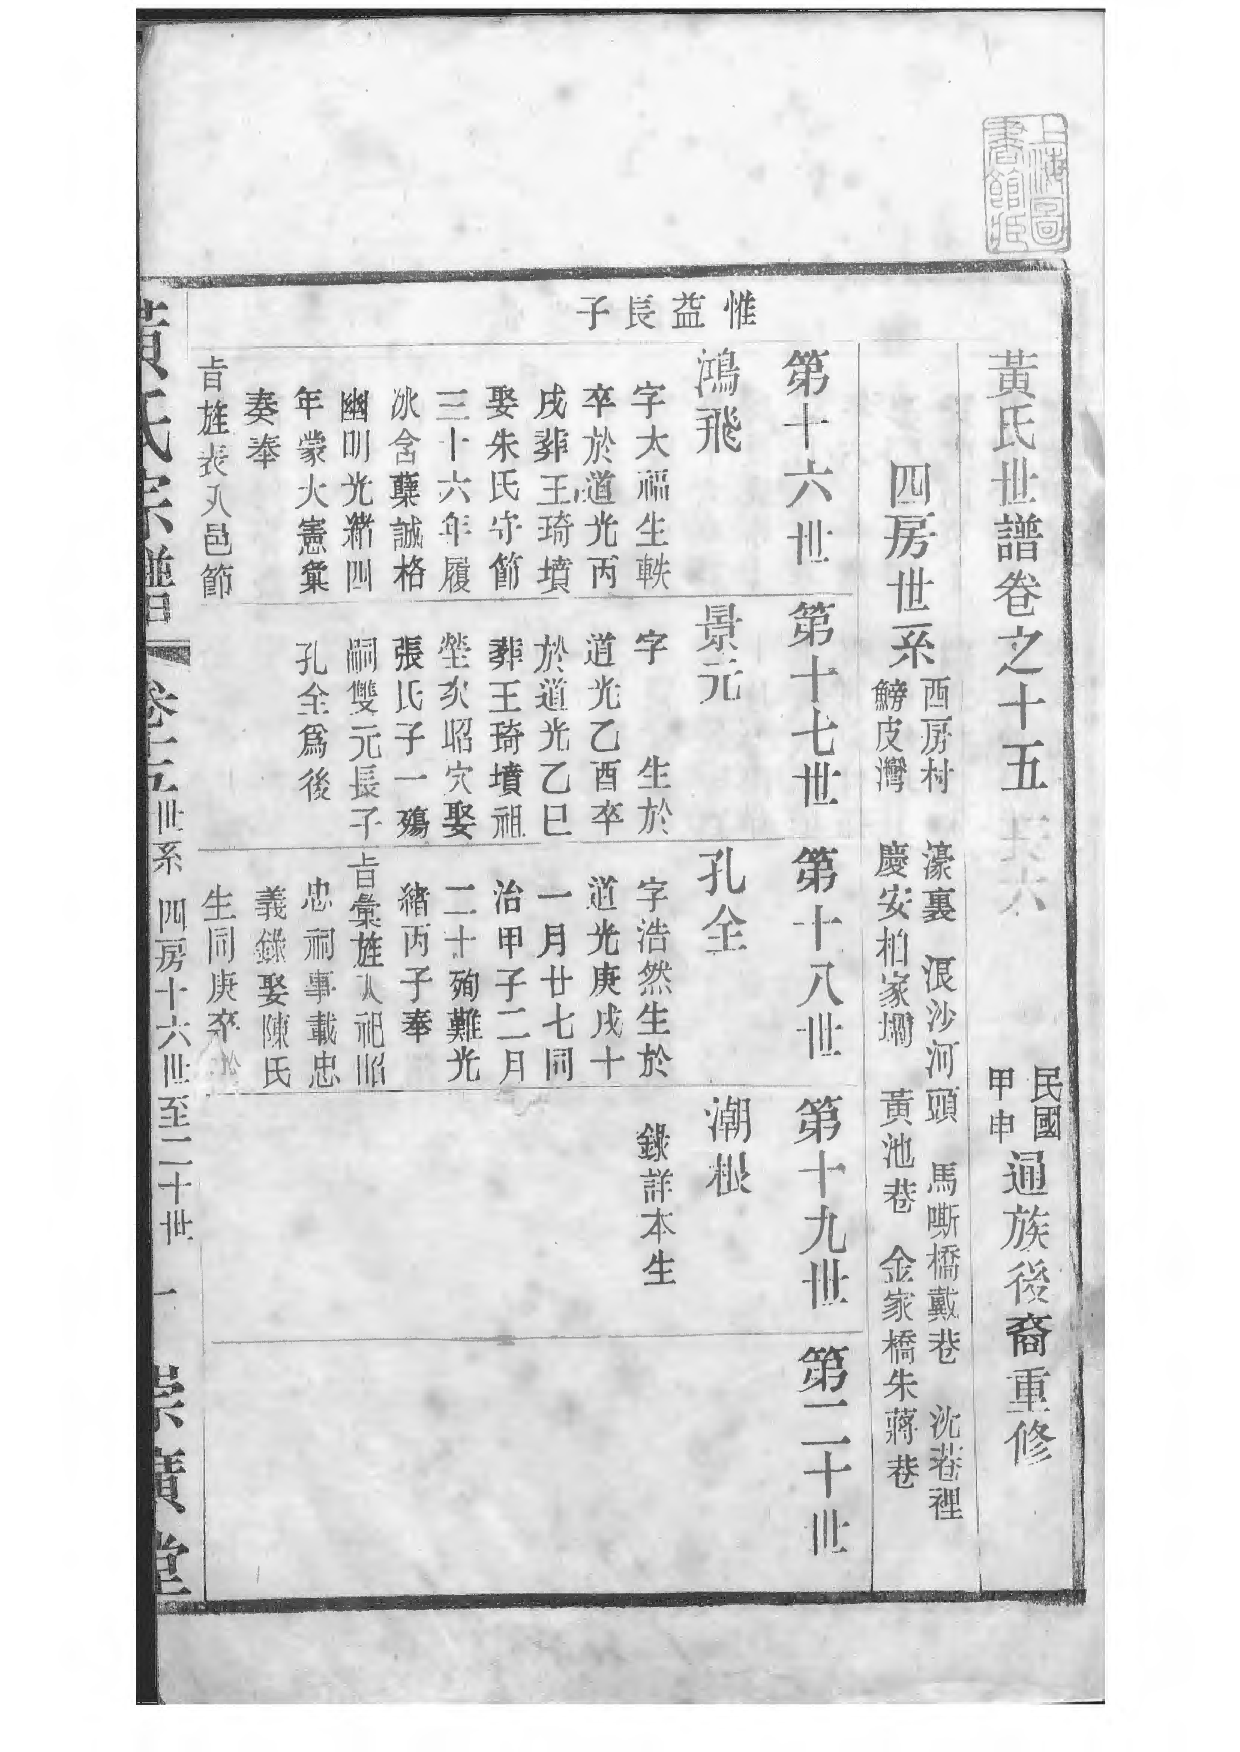 上海圖書館藏
黃氏世譜卷之十五
民國甲申
通族後裔重修
四房世系
西房村 濠裏 浪沙河頭 馬嘶橋戴巷 沈巷裡
鰟皮灣 慶安柏家壩 黃池巷 金家橋朱蔣巷
惟益長子
第十六世
鴻飛
字太福生軼
卒於道光丙
戌葬王琦墳
娶朱氏守節
三十六年履
冰含蘗誠格
幽明光緒四
年蒙大憲彙
奏奉
旨旌表入邑節
第十七世
景元
字 生於
道光乙酉卒
於道光乙巳
葬王琦墳祖
塋亥昭穴娶
張氏子一殤
嗣雙元長子
孔全爲後
第十八世
孔全
字浩然生於
道光庚戌十
一月廿七同
治甲子二月
二十殉難光
緒丙子奉
旨彙旌入祀昭
忠祠事載忠
義錄娶陳氏
生同庚卒於
第十九世
潮根
錄詳本生
第二十世
黃氏宗譜
卷十五 世系 四房十六世至二十世 一
崇廣堂